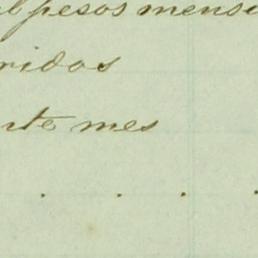 pesos mensu
ridos
rte mes
. . . .